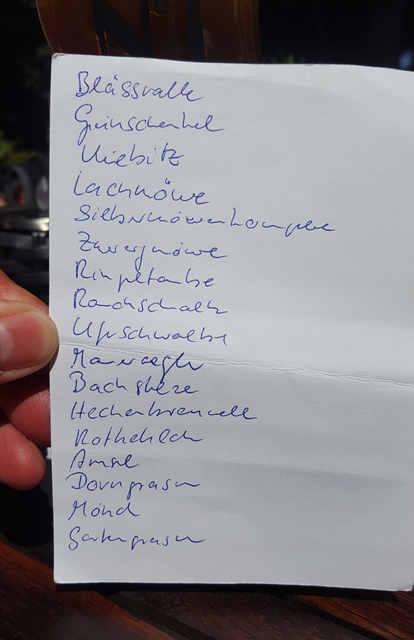 Blässralle
Grünschenkel
Kiebitz
Lachmöwe
Silbermöwenkomplex
Zwergmöwe
Ringeltaube
Rauchschwalb
Uferschwalbe
Mauersegler
Bachstelze
Heckenbraunelle
Rotkehlch
Amsel
Dorngrasm
Mönch
Gartengrasm